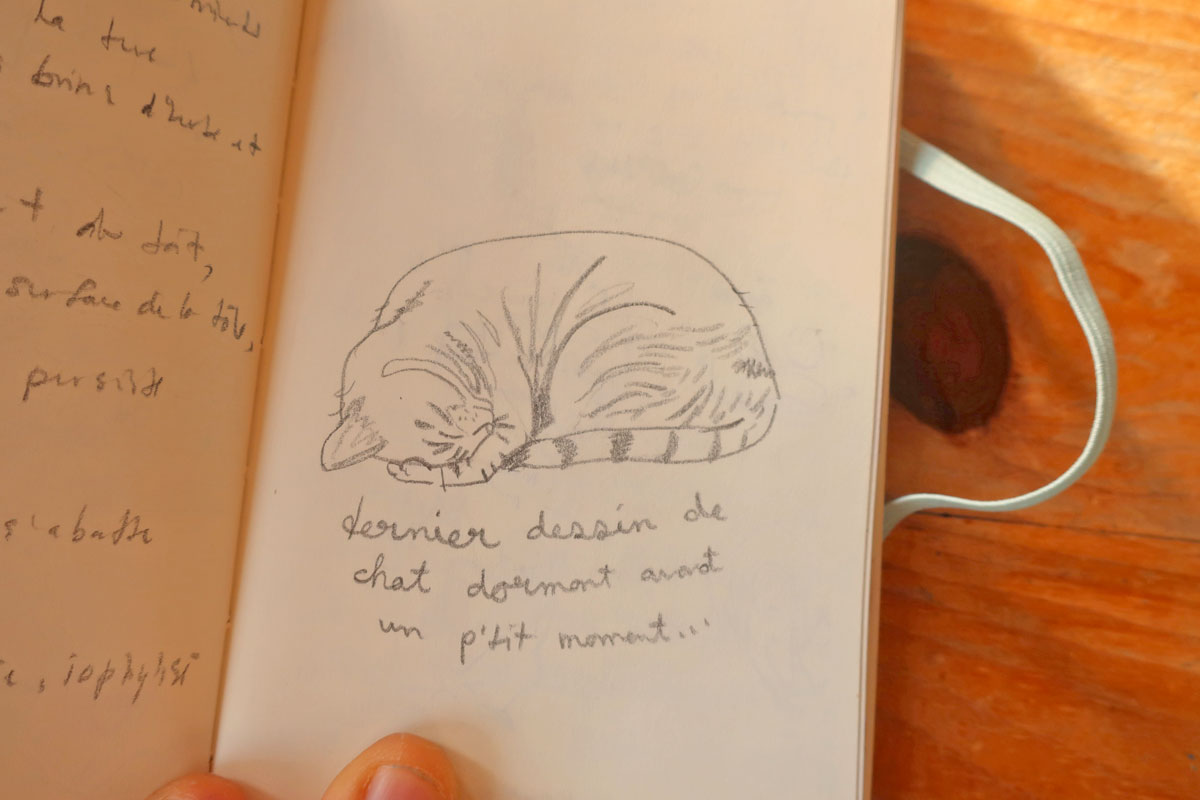 La
brins d'herbe et
du toit,
surface de la tôle,
persiste
s'abatte
dernier dessin de
chat dormant avant
un p'tit moment...